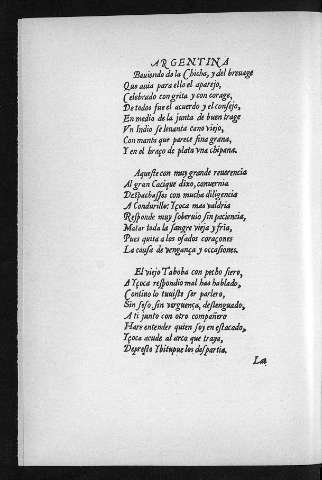 ARGENTINA
Bauiendo de la Chicha, y del breuage
Que auia para ello el aparejo,
Celebrado con grita y con corage,
De todos fue el acuerdo y el consejo,
En medio de la junta de buen trage
Vn Indio se leuanta cano viejo,
Con manta que parece fina grana,
Y en el braço de plata vna chipana.
Aqueste con muy grande reuerencia
Al gran Cacique dixo, conuernia
Despachassos con mucha diligencia
A Condurillo: Yçoca mas valdria
Responde muy soberuio sin paciencia,
Matar toda la sangre vieja y fria,
Pues quita a los osados coraçones
La causa de vengança y occasiones.
El viejo Taboba con pecho fiero,
A Yçoca respondio mal has hablado,
Contino lo tuuiste ser parlero,
Sin seso, sin verguença, deslenguado,
A ti junto con otro compañero
Hare entender quien soy en estacado,
Yçoca acude al arco que traya,
De presto Ybitupue los despartia.
La